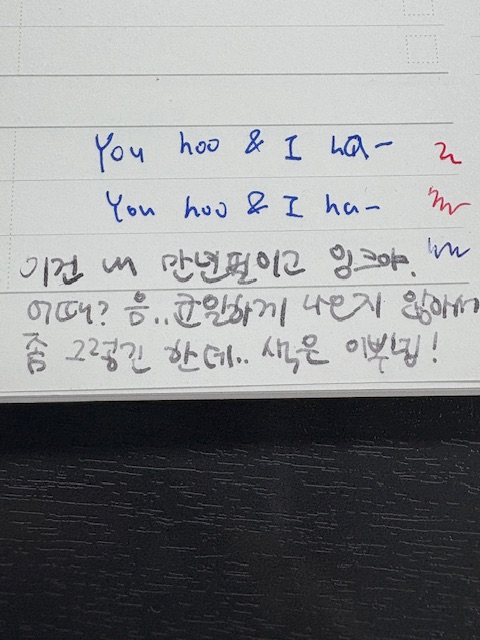 You hoo & I ha-
You hoo & I ha-
이건 내 만년필이고 잉크야.
어때? 음.. 균일하게 나오지 않아서
좀 그렇긴 한데.. 색은 이쁘넹!